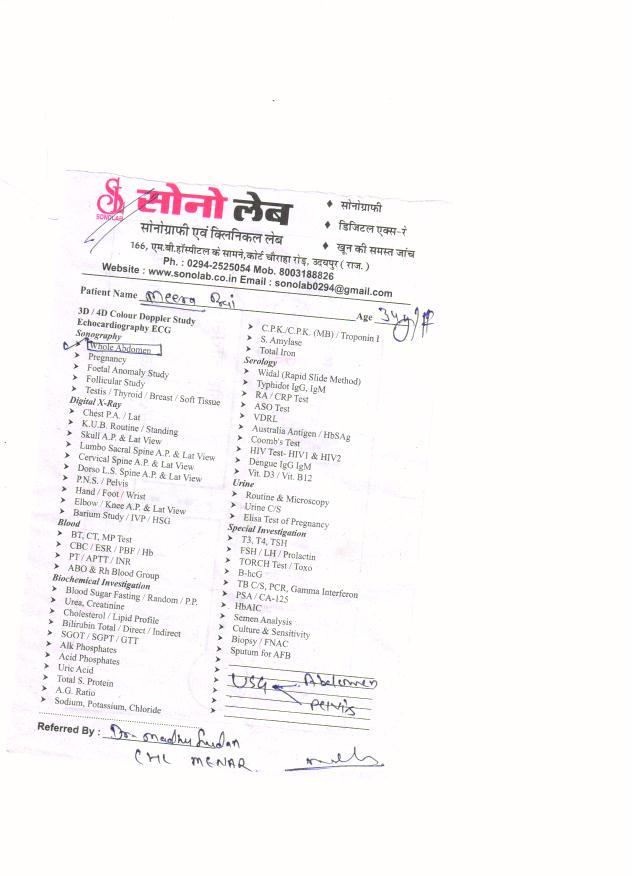 SONOLAB
सोनो लेब
सोनोग्राफी एवं क्लिनिकल लेब
♦ सोनोग्राफी
♦ डिजिटल एक्स-रे
♦ खून की समस्त जांच
166, एम.बी.हॉस्पीटल के सामने,कोर्ट चौराहा रोड़, उदयपुर ( राज. )
Ph. : 0294-2525054 Mob. 8003188826
Website : www.sonolab.co.in Email : sonolab0294@gmail.com
Patient Name Meera Bai
Age 34y/F
3D / 4D Colour Doppler Study
Echocardiography ECG
Sonography
Whole Abdomen
Pregnancy
Foetal Anomaly Study
Follicular Study
Testis / Thyroid / Breast / Soft Tissue
Digital X-Ray
Chest P.A. / Lat
K.U.B. Routine / Standing
Skull A.P. & Lat View
Lumbo Sacral Spine A.P. & Lat View
Cervical Spine A.P. & Lat View
Dorso L.S. Spine A.P. & Lat View
P.N.S. / Pelvis
Hand / Foot / Wrist
Elbow / Knee A.P. & Lat View
Barium Study / IVP / HSG
Blood
BT, CT, MP Test
CBC / ESR / PBF / Hb
PT / APTT / INR
ABO & Rh Blood Group
Biochemical Investigation
Blood Sugar Fasting / Random / P.P.
Urea, Creatinine
Cholesterol / Lipid Profile
Bilirubin Total / Direct / Indirect
SGOT / SGPT / GTT
Alk Phosphates
Acid Phosphates
Uric Acid
Total S. Protein
A.G. Ratio
Sodium, Potassium, Chloride
C.P.K./C.P.K. (MB) / Troponin I
S. Amylase
Total Iron
Serology
Widal (Rapid Slide Method)
Typhidot IgG, IgM
RA / CRP Test
ASO Test
VDRL
Australia Antigen / HbSAg
Coomb's Test
HIV Test- HIV1 & HIV2
Dengue IgG IgM
Vit. D3 / Vit. B12
Urine
Routine & Microscopy
Urine C/S
Elisa Test of Pregnancy
Special Investigation
T3, T4, TSH
FSH / LH / Prolactin
TORCH Test / Toxo
B-hcG
TB C/S, PCR, Gamma Interferon
PSA / CA-125
HbAIC
Semen Analysis
Culture & Sensitivity
Biopsy / FNAC
Sputum for AFB
USG Abdomen
Pelvis
Referred By : Dr. Madhu Sudan
CHC MENAR